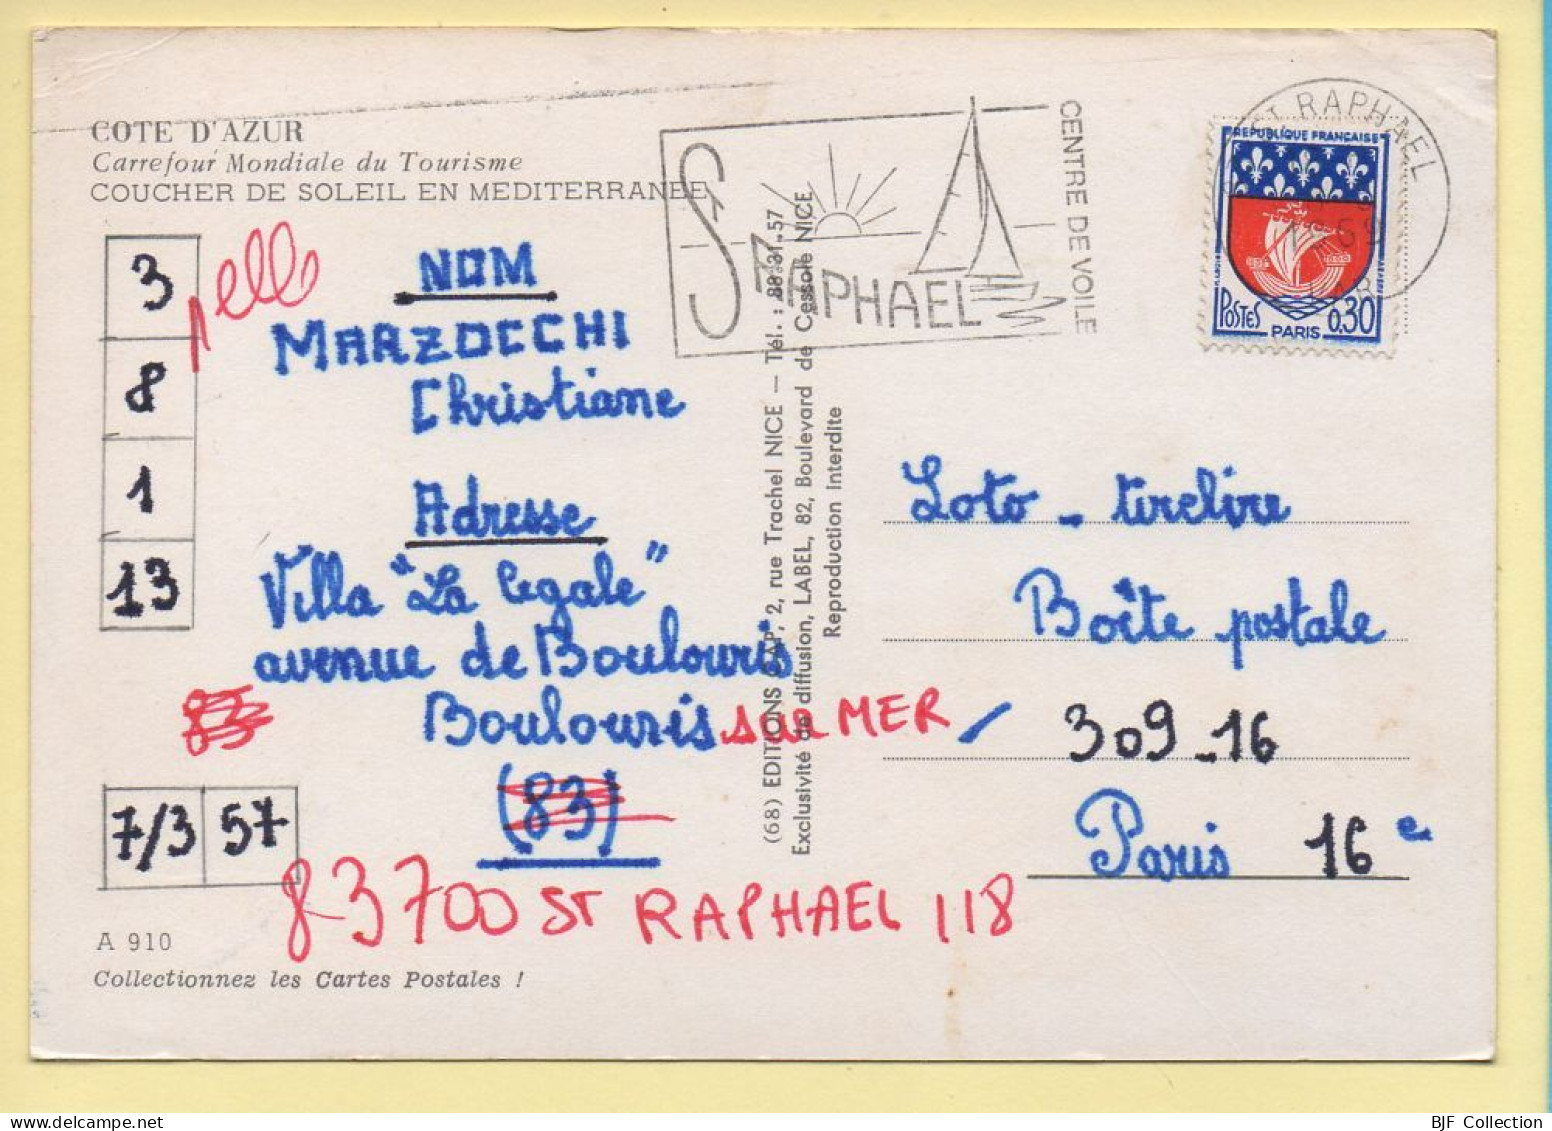 COTE D'AZUR
Carrefour Mondiale du Tourisme
COUCHER DE SOLEIL EN MEDITERRANEE
3
8
1
13
NOM
MARZOCCHI
Christiane
Adresse
Villa "La Cigale"
avenue de Boulouris
Boulouris sur MER
(83)
7/3 57
83700 ST RAPHAEL 118
A 910
Collectionnez les Cartes Postales !
(68) EDITIONS CAP, 2, rue Trachel NICE — Tél. : 88-31-57
Exclusivité de diffusion, LABEL, 82, Boulevard de Cessole NICE
Reproduction Interdite
ST RAPHAEL
CENTRE DE VOILE
ST RAPHAEL
REPUBLIQUE FRANÇAISE
POSTES
PARIS
0,30
Loto - tirelire
Boîte postale
309-16
Paris 16e
BJF Collection